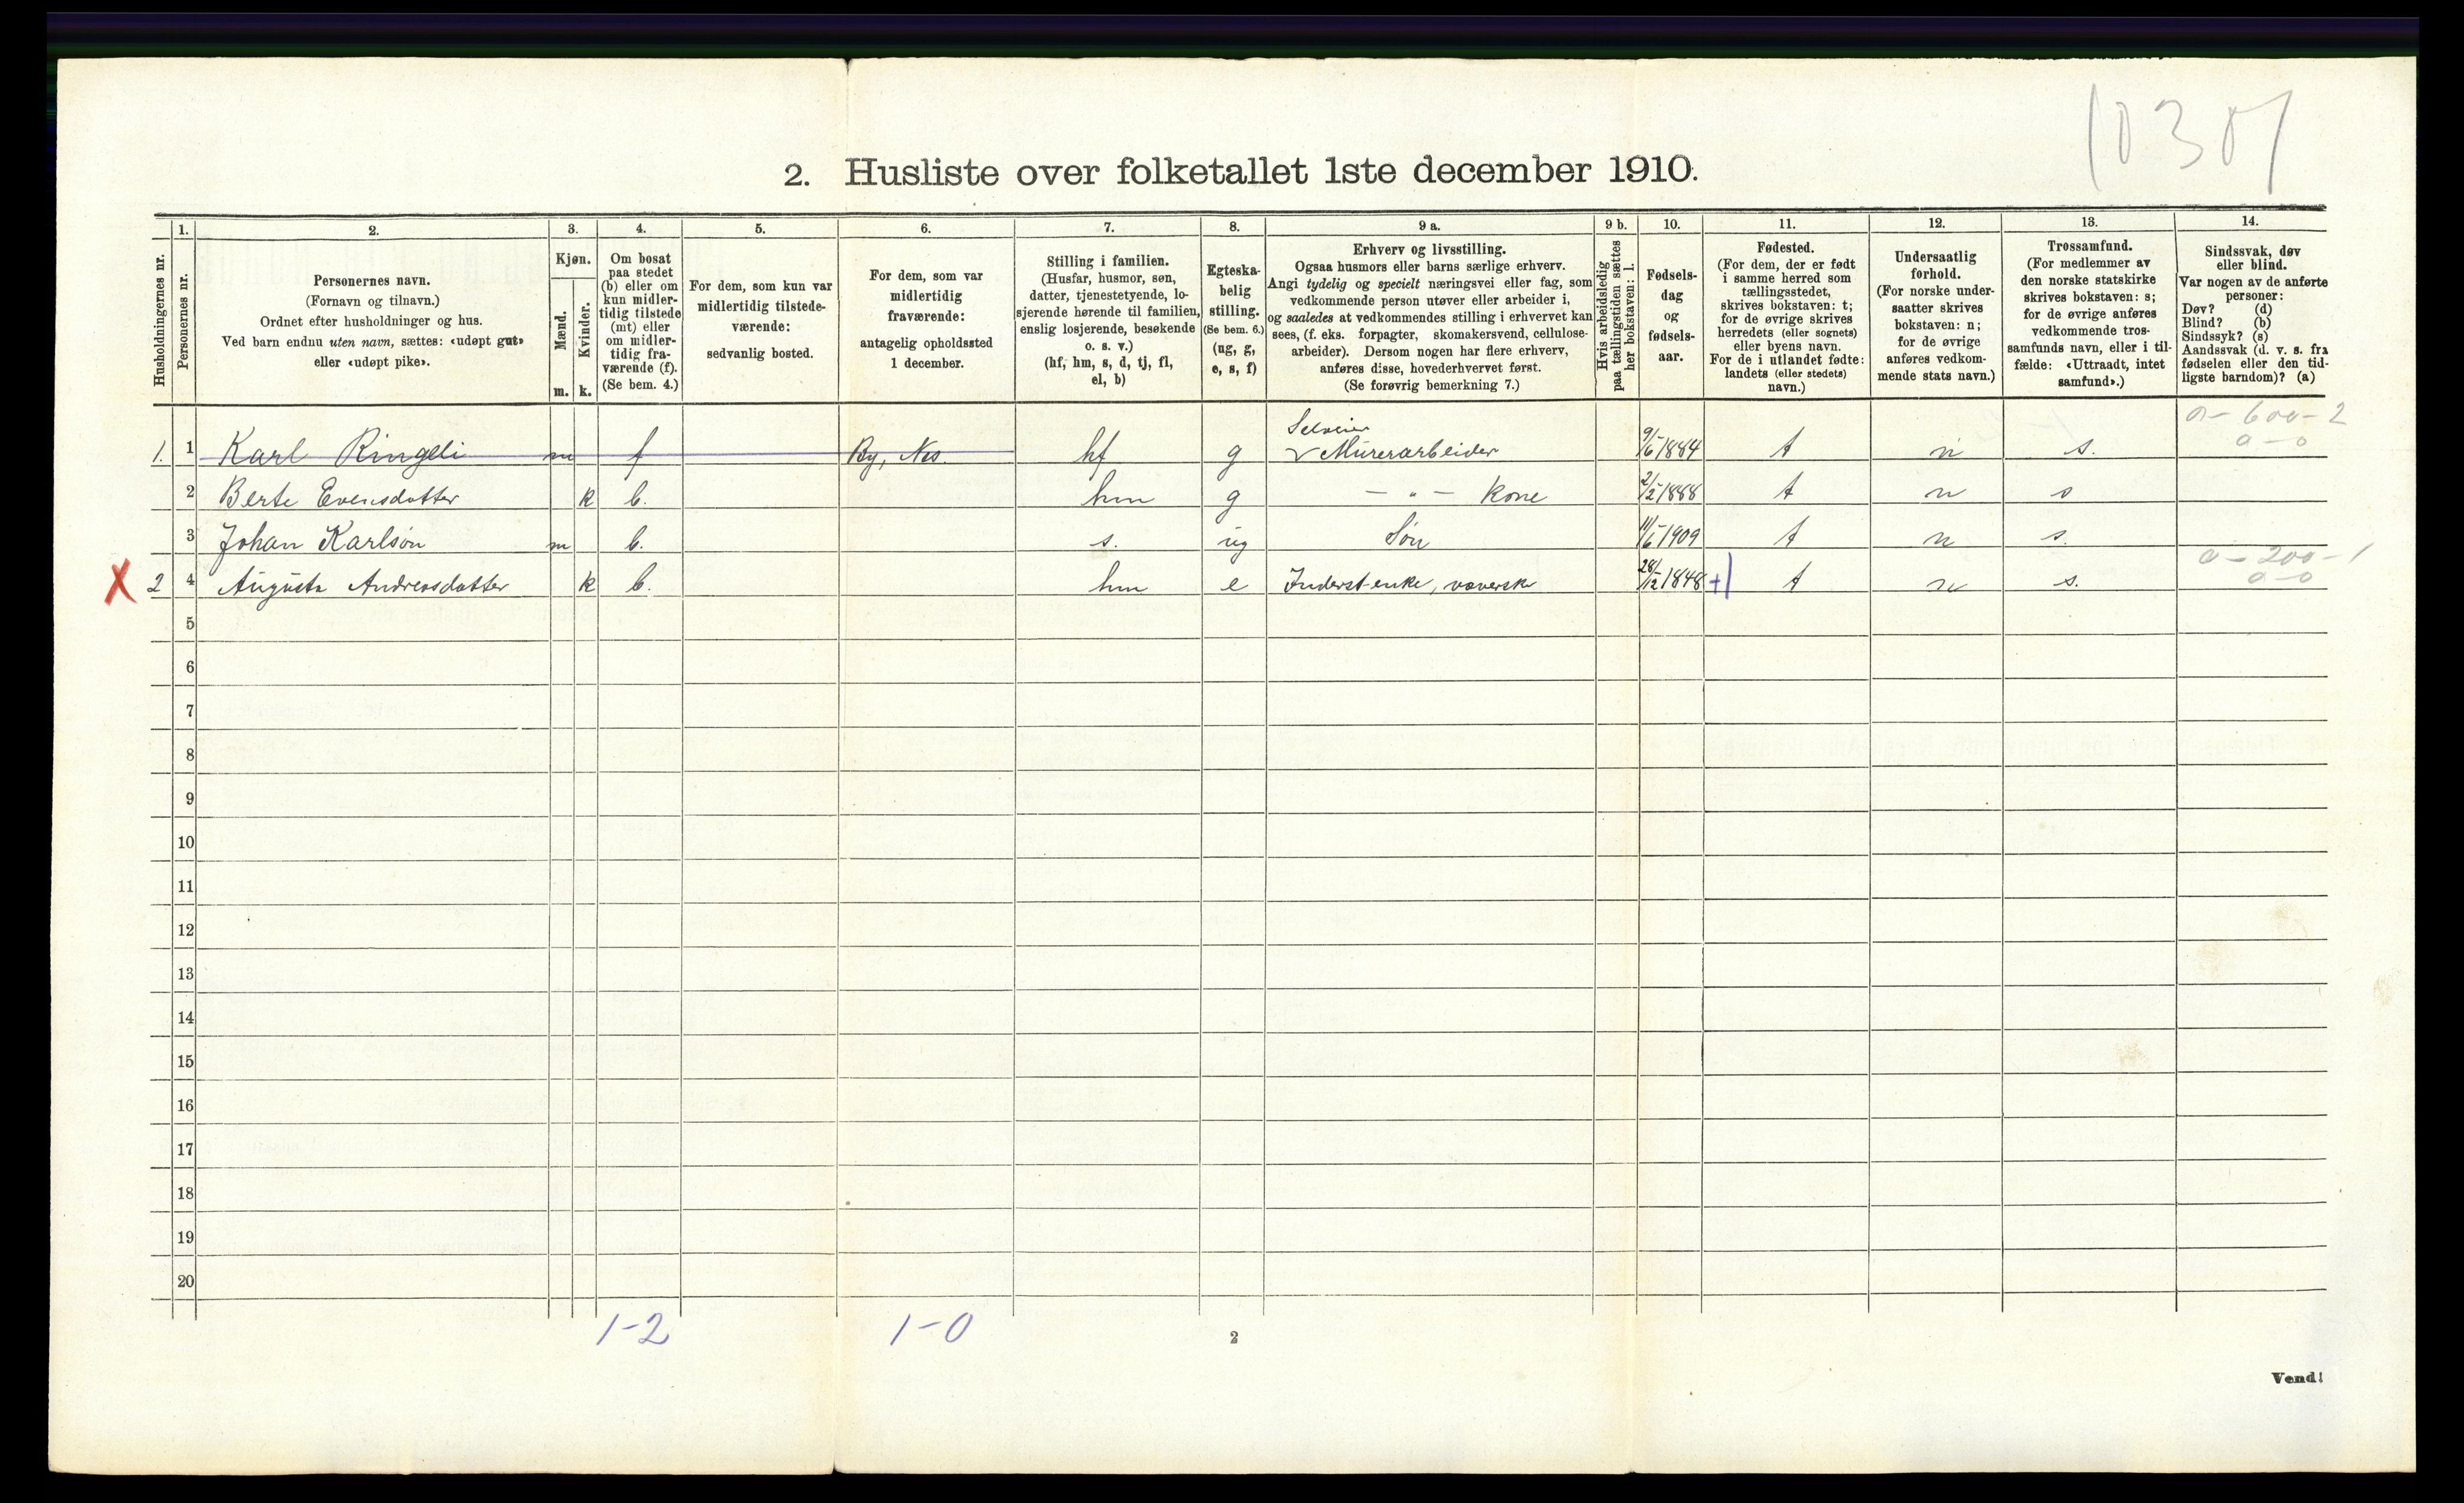 10307
2. Husliste over folketallet 1ste december 1910.
Husholdningernes nr.
1.
Personernes nr.
2.
Personernes navn.
(Fornavn og tilnavn.)
Ordnet efter husholdninger og hus.
Ved barn endnu uten navn, sættes: «udøpt gut»
eller «udøpt pike».
3.
Kjøn.
Mænd.
m.
Kvinder.
k.
4.
Om bosat
paa stedet
(b) eller om
kun midler-
tidig tilstede
(mt) eller
om midler-
tidig fra-
værende (f).
(Se bem. 4.)
5.
For dem, som kun var
midlertidig tilstede-
værende:
sedvanlig bosted.
6.
For dem, som var
midlertidig
fraværende:
antagelig opholdssted
1 december.
7.
Stilling i familien.
(Husfar, husmor, søn,
datter, tjenestetyende, lo-
sjerende hørende til familien,
enslig losjerende, besøkende
o. s. v.)
(hf, hm, s, d, tj, fl,
el, b)
8.
Egteska-
belig
stilling.
(Se bem. 6.)
(ug, g,
e, s, f)
9 a.
Erhverv og livsstilling.
Ogsaa husmors eller barns særlige erhverv.
Angi tydelig og specielt næringsvei eller fag, som
vedkommende person utøver eller arbeider i,
og saaledes at vedkommendes stilling i erhvervet kan
sees, (f. eks. forpagter, skomakersvend, cellulose-
arbeider). Dersom nogen har flere erhverv,
anføres disse, hovederhvervet først.
(Se forøvrig bemerkning 7.)
9 b.
Hvis arbeidsledig
paa tællingstiden sættes
her bokstaven: l.
10.
Fødsels-
dag
og
fødsels-
aar.
11.
Fødested.
(For dem, der er født
i samme herred som
tællingsstedet,
skrives bokstaven: t;
for de øvrige skrives
herredets (eller sognets)
eller byens navn.
For de i utlandet fødte:
landets (eller stedets)
navn.)
12.
Undersaatlig
forhold.
(For norske under-
saatter skrives
bokstaven: n;
for de øvrige
anføres vedkom-
mende stats navn.)
13.
Trossamfund.
(For medlemmer av
den norske statskirke
skrives bokstaven: s;
for de øvrige anføres
vedkommende tros-
samfunds navn, eller i til-
fælde: «Uttraadt, intet
samfund».)
14.
Sindssvak, døv
eller blind.
Var nogen av de anførte
personer:
Døv? (d)
Blind? (b)
Sindssyk? (s)
Aandssvak (d. v. s. fra
fødselen eller den tid-
ligste barndom)? (a)
Selveier
a - 600 - 2
a - o
1. 1 Karl Ringeli m f By, Nes. hf g Mürerarbeider 9/6 1884 t n s.
2 Berte Evensdatter k b. hm g - " - kone 2/2 1888 t n s
3 Johan Karlsön m b. s. ug Søn 11/6 1909 t n s.
a - 200 - 1
a - o
X 2 4 Augusta Andreasdatter k b. hm e Inderst-enke, væverske 28/12 1848 +| t n s.
5
6
7
8
9
10
11
12
13
14
15
16
17
18
19
20
1-2 1-0
2
Vend!